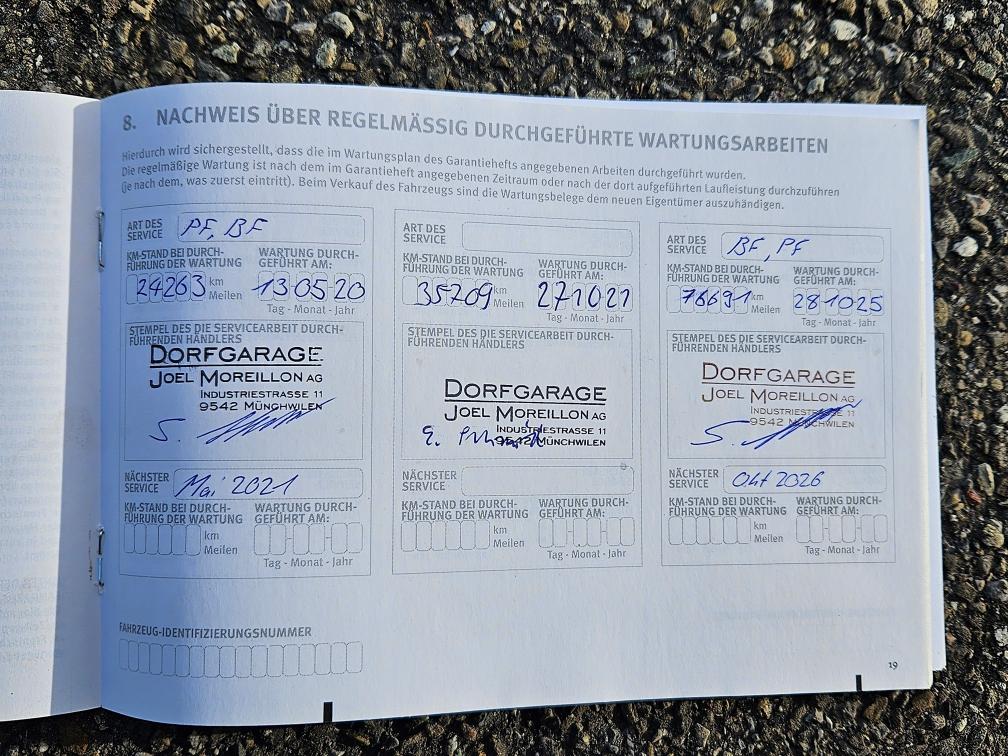 8. NACHWEIS ÜBER REGELMÄSSIG DURCHGEFÜHRTE WARTUNGSARBEITEN
Hierdurch wird sichergestellt, dass die im Wartungsplan des Garantiehefts angegebenen Arbeiten durchgeführt wurden.
Die regelmäßige Wartung ist nach dem im Garantieheft angegebenen Zeitraum oder nach der dort aufgeführten Laufleistung durchzuführen
(je nach dem, was zuerst eintritt). Beim Verkauf des Fahrzeugs sind die Wartungsbelege dem neuen Eigentümer auszuhändigen.
ART DES
SERVICE
PF, BF
KM-STAND BEI DURCH-
FÜHRUNG DER WARTUNG
WARTUNG DURCH-
GEFÜHRT AM:
24263 km
Meilen
13-05-20
Tag - Monat - Jahr
STEMPEL DES DIE SERVICEARBEIT DURCH-
FÜHRENDEN HÄNDLERS
DORFGARAGE
JOEL MOREILLON AG
INDUSTRIESTRASSE 11
9542 MÜNCHWILEN
S.
NÄCHSTER
SERVICE
Mai 2021
KM-STAND BEI DURCH-
FÜHRUNG DER WARTUNG
WARTUNG DURCH-
GEFÜHRT AM:
km
Meilen
Tag - Monat - Jahr
ART DES
SERVICE
KM-STAND BEI DURCH-
FÜHRUNG DER WARTUNG
WARTUNG DURCH-
GEFÜHRT AM:
35709 km
Meilen
271021
Tag - Monat - Jahr
STEMPEL DES DIE SERVICEARBEIT DURCH-
FÜHRENDEN HÄNDLERS
DORFGARAGE
JOEL MOREILLON AG
INDUSTRIESTRASSE 11
9542 MÜNCHWILEN
NÄCHSTER
SERVICE
KM-STAND BEI DURCH-
FÜHRUNG DER WARTUNG
WARTUNG DURCH-
GEFÜHRT AM:
km
Meilen
Tag - Monat - Jahr
ART DES
SERVICE
BF, PF
KM-STAND BEI DURCH-
FÜHRUNG DER WARTUNG
WARTUNG DURCH-
GEFÜHRT AM:
76691 km
Meilen
281025
Tag - Monat - Jahr
STEMPEL DES DIE SERVICEARBEIT DURCH-
FÜHRENDEN HÄNDLERS
DORFGARAGE
JOEL MOREILLON AG
INDUSTRIESTRASSE 11
9542 MÜNCHWILEN
S.
NÄCHSTER
SERVICE
Okt 2026
KM-STAND BEI DURCH-
FÜHRUNG DER WARTUNG
WARTUNG DURCH-
GEFÜHRT AM:
km
Meilen
Tag - Monat - Jahr
FAHRZEUG-IDENTIFIZIERUNGSNUMMER
19